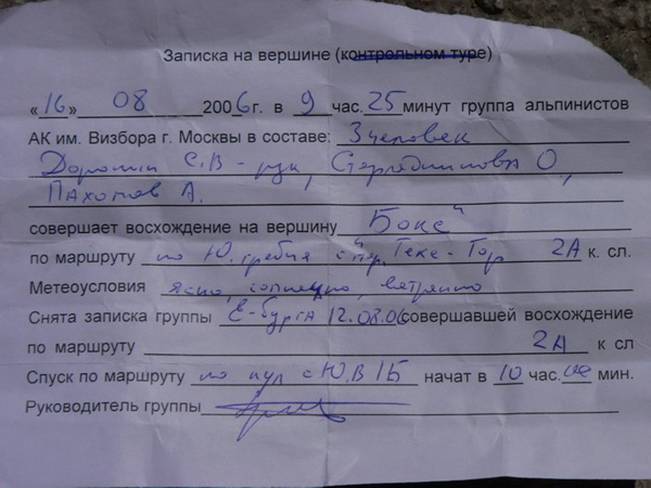 Записка на вершине (контрольном туре)
«16» 08 2006г. в 9 час. 25 минут группа альпинистов
АК им. Визбора г. Москвы в составе: 3 человек
С.В - рук, О,
Пахомов А.
совершает восхождение на вершину "Бокс"
по маршруту по Ю. гребню с "пер. Теке-Тор 2А к. сл.
Метеоусловия ясно, солнечно, ветрено
Снята записка группы Е-бурга 12.08.06 совершавшей восхождение
по маршруту 2А к сл
Спуск по маршруту по кул с Ю.В 1Б начат в 10 час. мин.
Руководитель группы